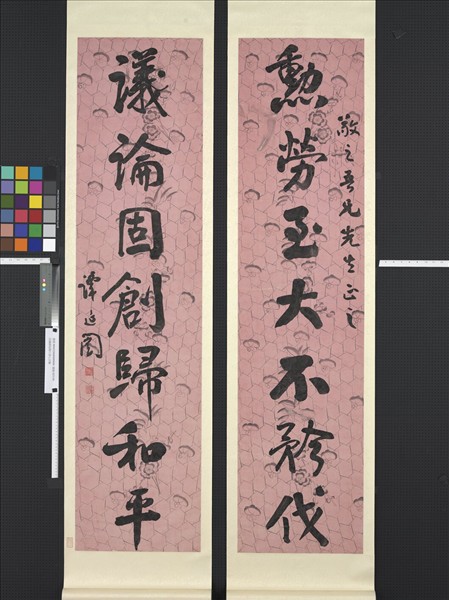 敬之吾兄先生正之
勳勞至大不矜伐
議論固創歸和平
譚延闓